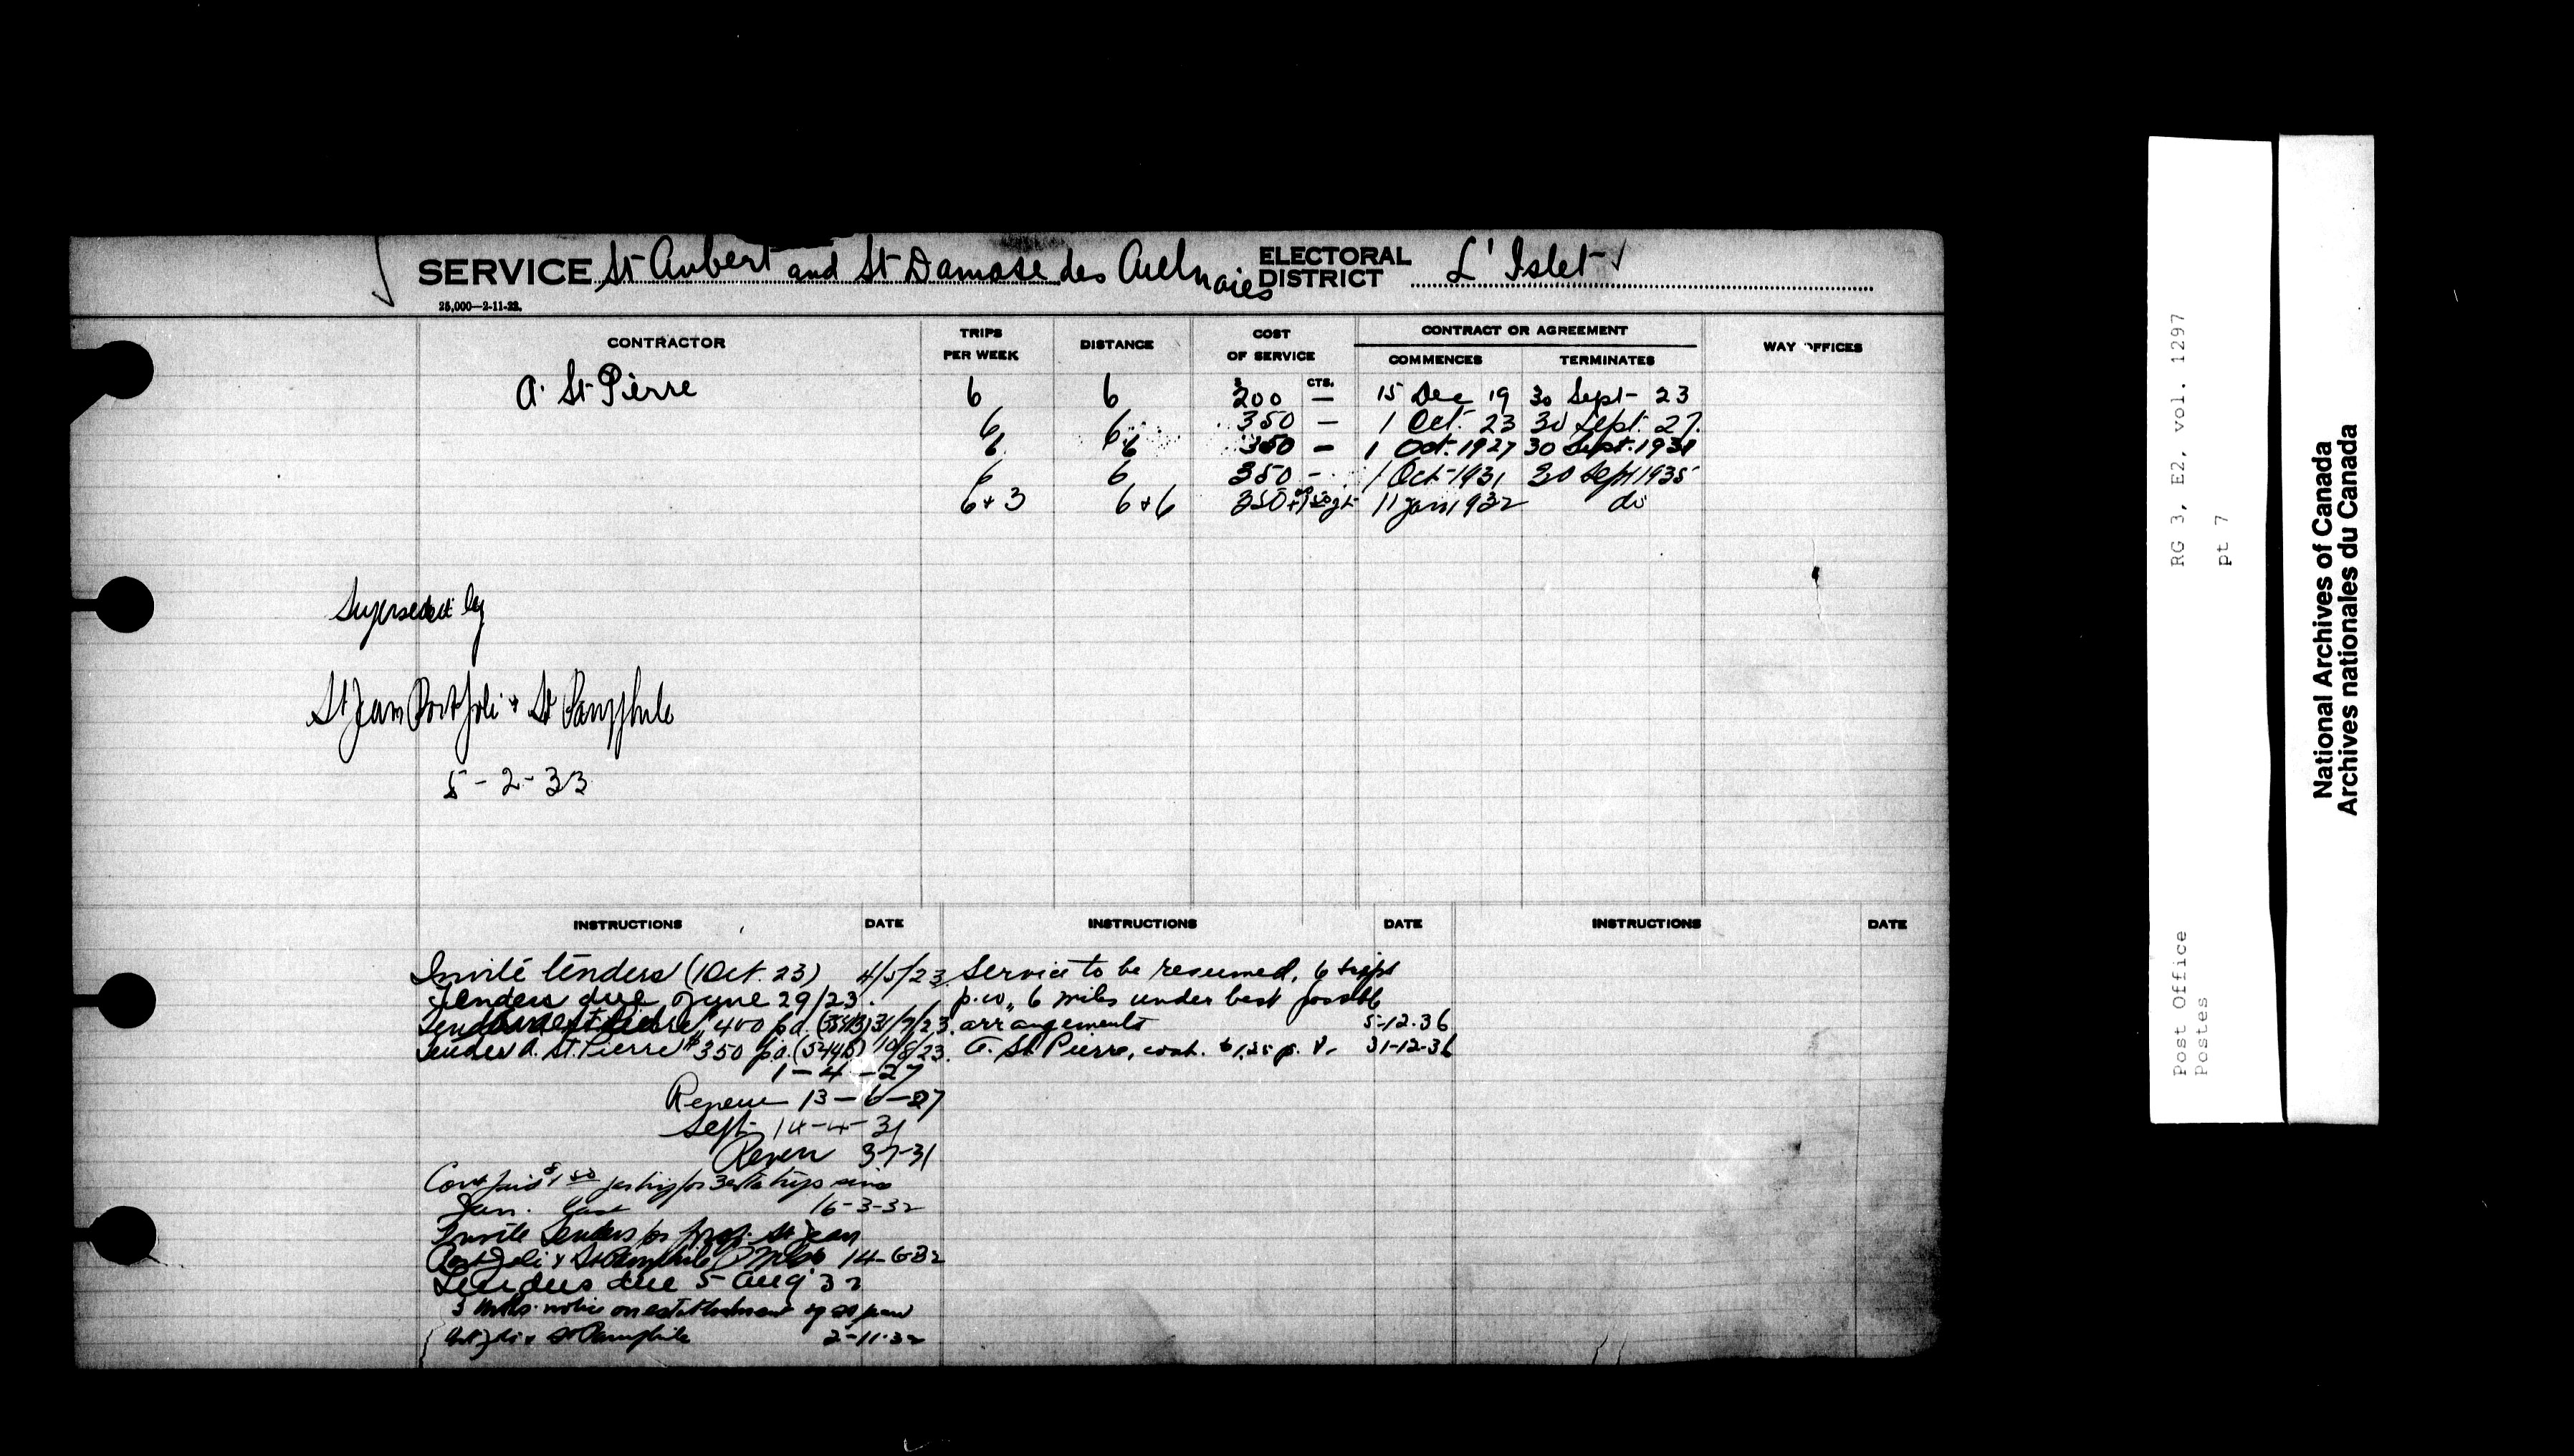 SERVICE St Aubert and St Damase des Aulnaies ELECTORAL DISTRICT L'Islet
25,000—2-11-22.
CONTRACTOR TRIPS PER WEEK DISTANCE COST OF SERVICE CONTRACT OR AGREEMENT COMMENCES TERMINATES WAY OFFICES
$ CTS.
A. St Pierre 6 6 200 — 15 Dec 19 30 Sept- 23
6 6 350 — 1 Oct. 23 30 Sept. 27.
6 6 350 — 1 Oct. 1927 30 Sept. 1931
6 6 350 - 1 Oct 1931 30 Sept 1935
6+3 6+6 350 11 Jan 1932 do
Superseded by
St Jean Port Joli & St Pamphile
5-2-33
INSTRUCTIONS DATE INSTRUCTIONS DATE INSTRUCTIONS DATE
Invite tenders (1 Oct. 23) 4/5/23.
Tenders due June 29/23.
$400 p.a. 31/7/23.
Tender A. St. Pierre $350 p.a. 10/8/23.
1-4-27
Renew 13-6-27
Sept- 14-4-31
Renew 3-7-31
Cont paid $1.50 per trip for 3 extra trips since
Jan. last 16-3-32
Invite Tenders for prop. St Jean
Port Joli & St Pamphile 14-6-32
Tenders due 5 Aug 32
3 mths. notice on establishment of St Jean
Port Joli & St Pamphile 2-11-32
Service to be resumed, 6 trips
p.w., 6 miles under best possible
arrangements 5-12-36
A. St Pierre, cont. $1.25 p. 31-12-36
RG 3, E2, vol. 1297
pt 7
Post Office
Postes
National Archives of Canada
Archives nationales du Canada